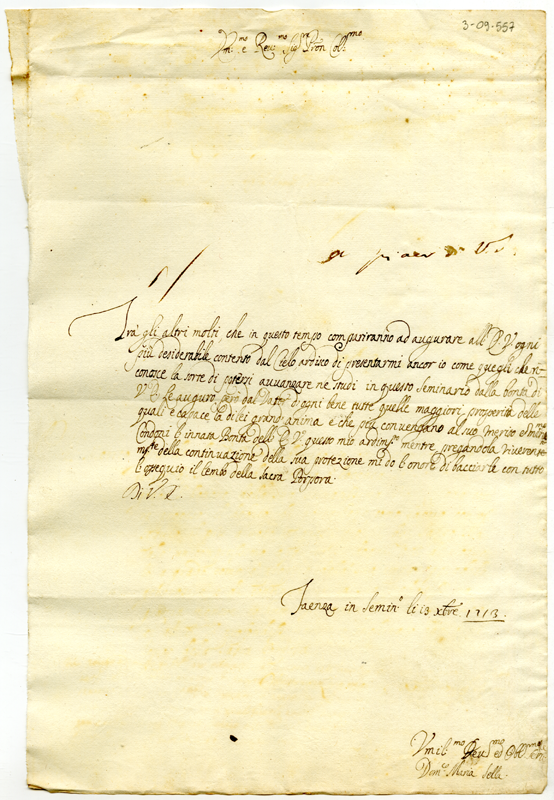 3-09-557
Em.mo e Rev.mo Sig.re Pron Coll.mo
di V. S.
Trà gli altri molti che in questo tempo compariranno ad augurare all' E. V. ogni
più desiderabile contento dal Cielo ardisco di presentarmi ancor io come quegli che ri-
conosce la sorte di potersi avvanzare ne studi in questo Seminario dalla bontà di
V. E. Le auguro però dal Dat.e d'ogni bene tutte quelle maggiori prosperità delle
quali è capace la di lei grand'anima e che più convengano al suo merito
Condoni l'innata Bontà dell' E. V. questo mio ardim.to mentre pregandola riverente
m.te della continuazione della sua protezione mi do l'onore di bacciarle con tutto
l'ossequio il lembo della Sacra Porpora.
Di V. E.
Faenza in Semin.o li 13 Xbre 1713.
Vmil.mo Dev.mo ed Obl.mo
Dom.o Maria Sella